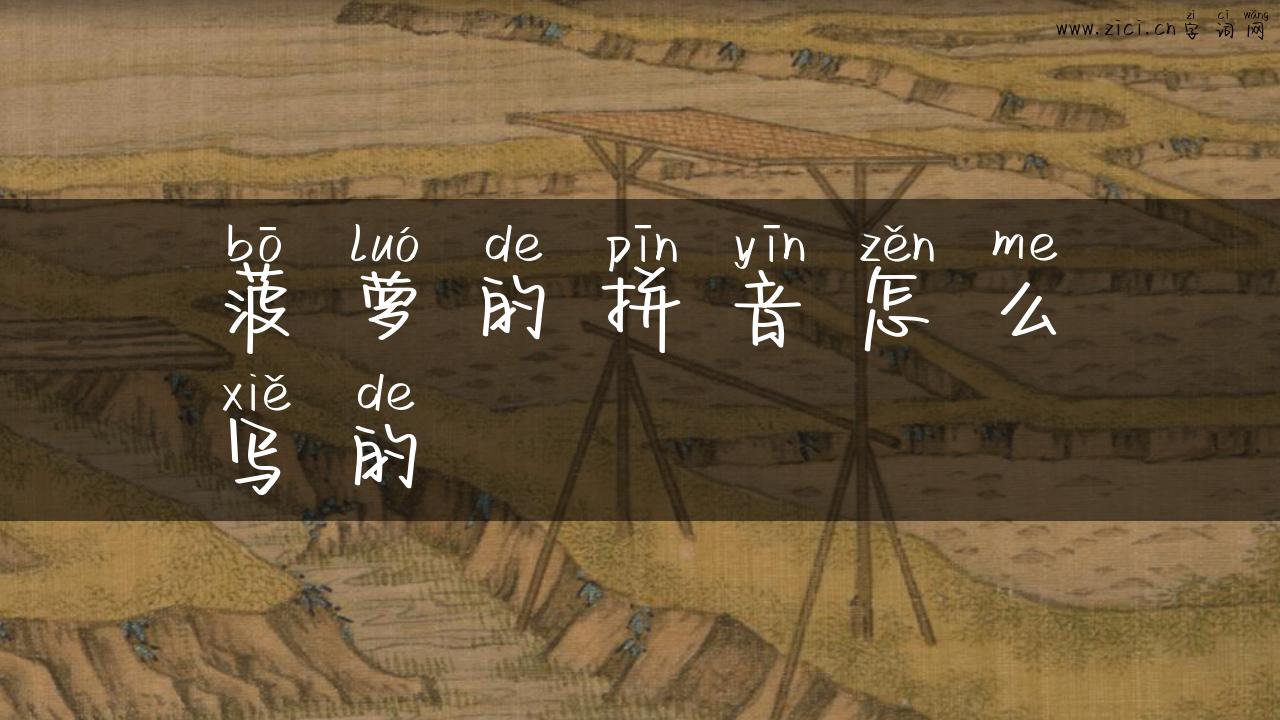 zì cí wǎng
www.zici.cn 字 词 网
bō luó de pīn yīn zěn me
菠 萝 的 拼 音 怎 么
xiě de
写 的